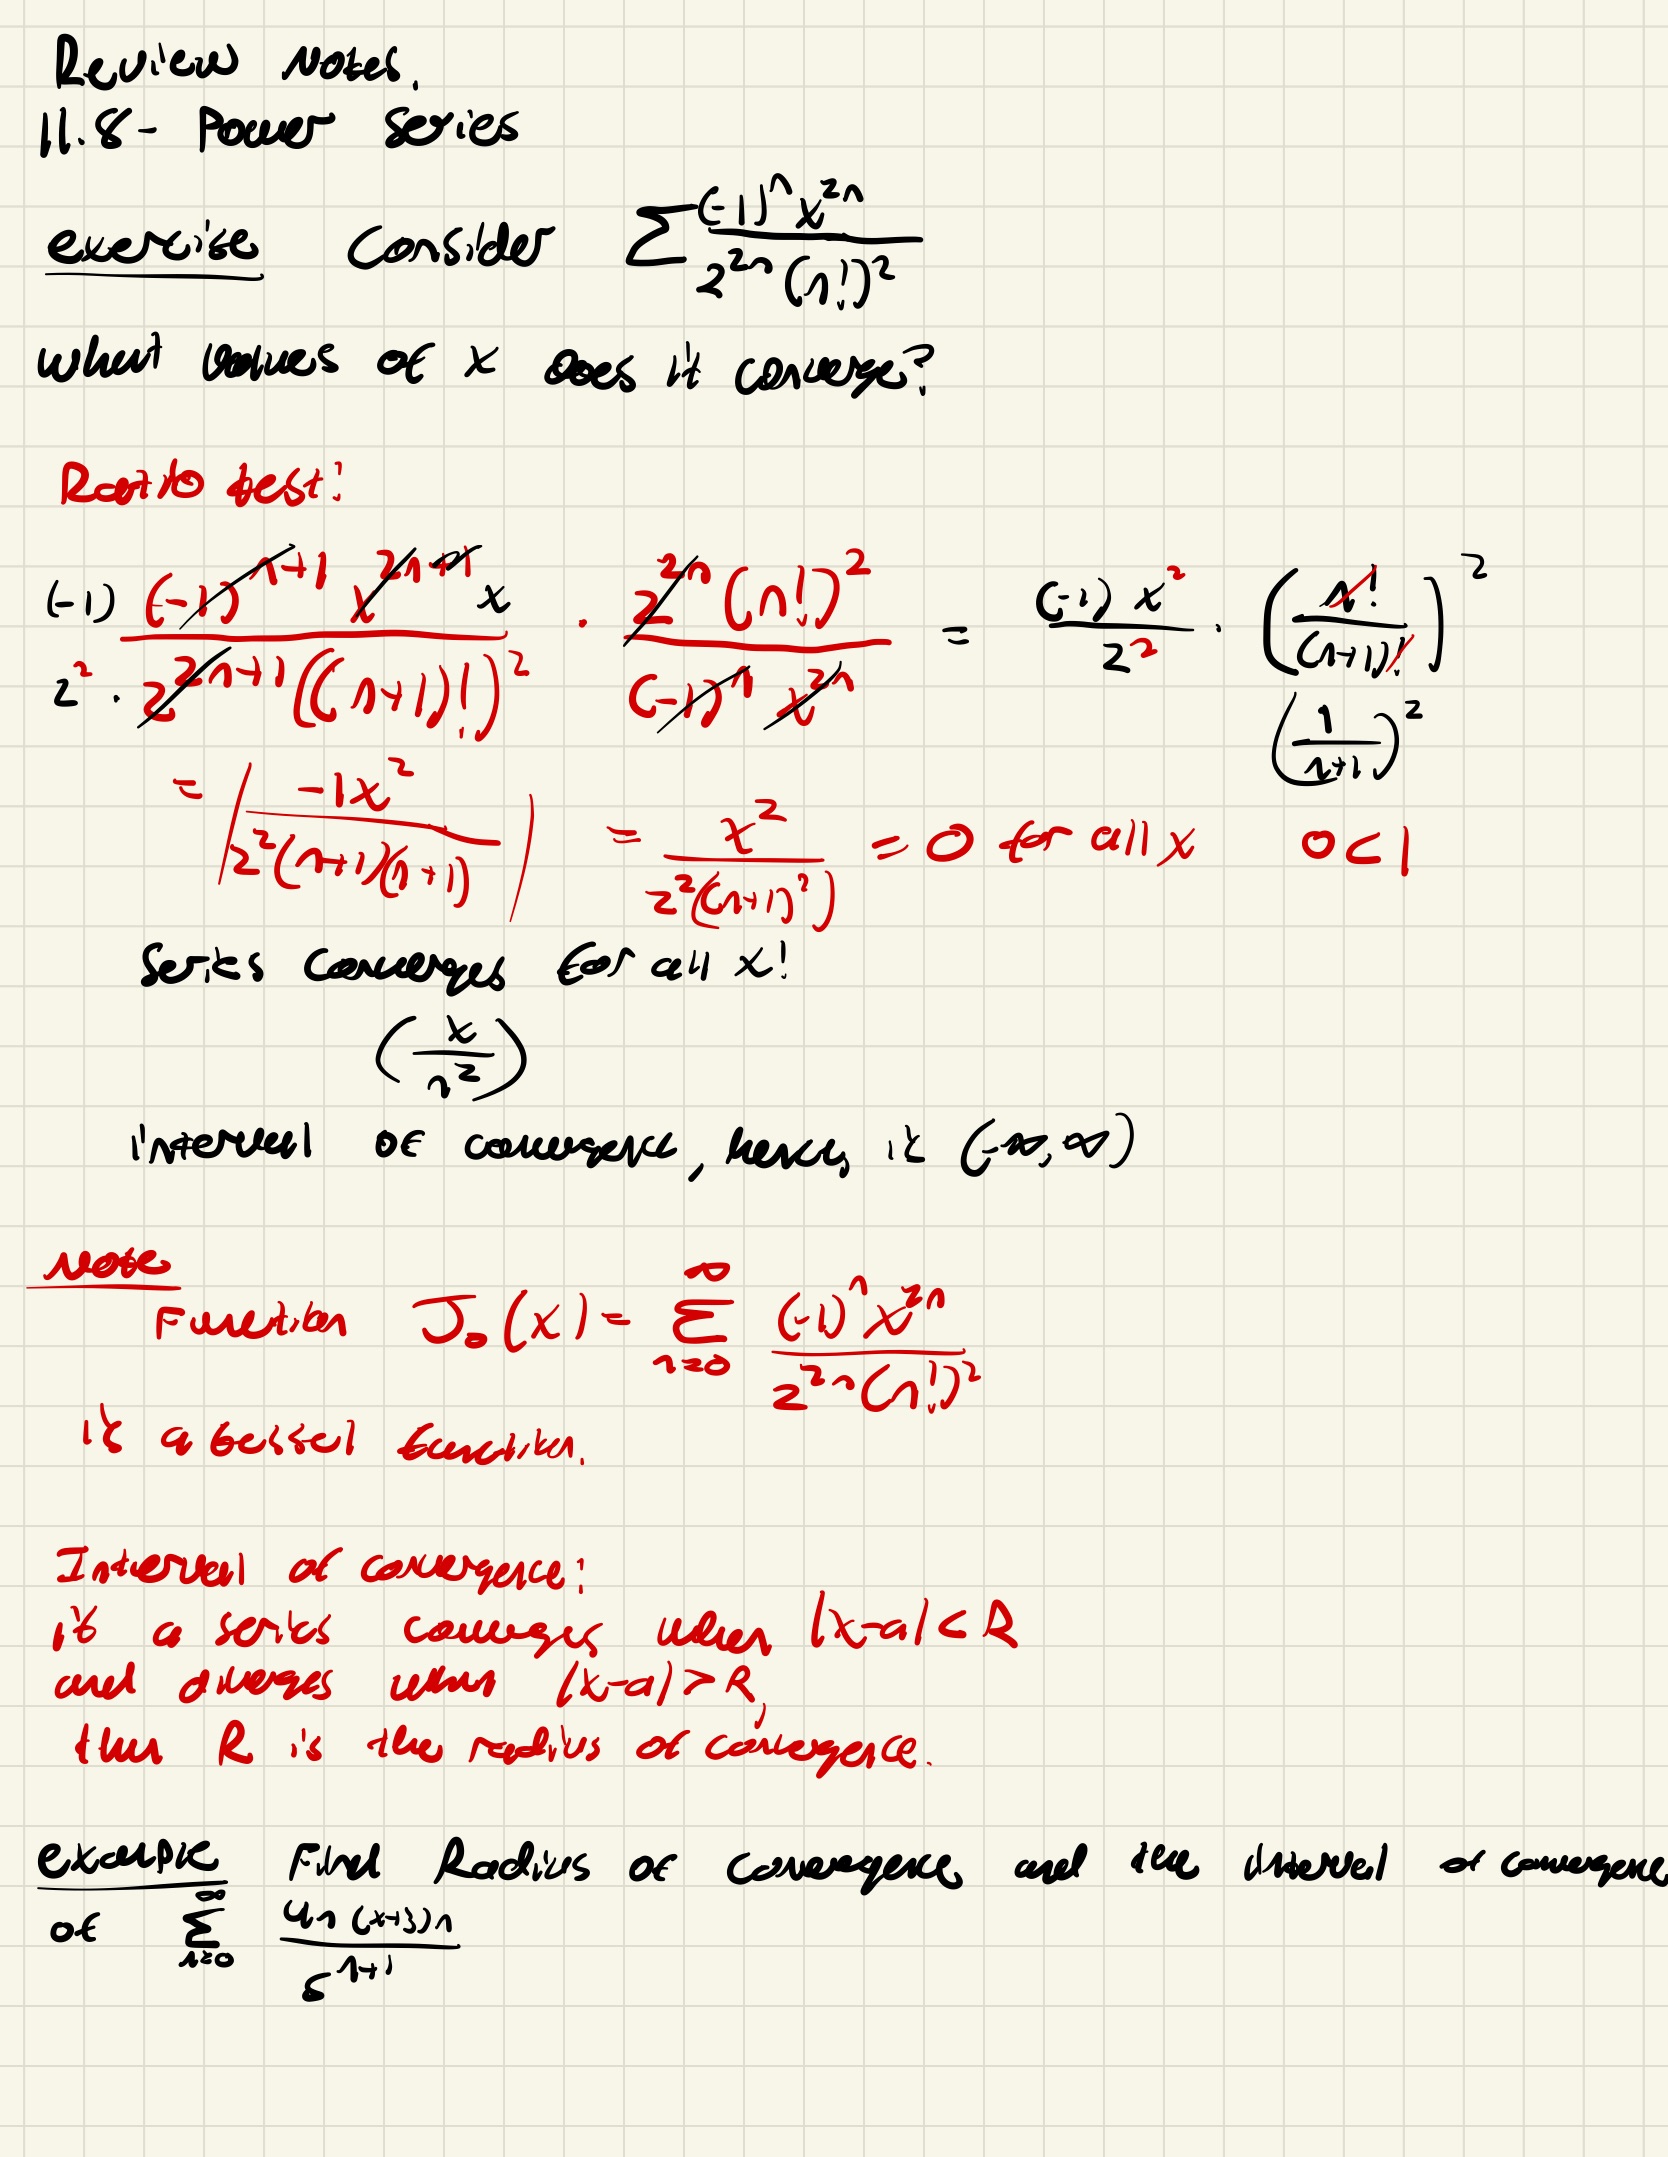 Review Notes.
11.8 - Power Series
exercise Consider Σ (-1)^n x^{2n} / 2^{2n} (n!)^2
what values of x does it converge?
Ratio test:
(-1) (-1)^{n+1} x^{2n+1} x / 2^2 · 2^{2n+1} ((n+1)!)^2 · 2^{2n} (n!)^2 / (-1)^n x^{2n} = (-1) x^2 / 2^2 · (n! / (n+1)!)^2
(1 / n+1)^2
= | -1x^2 / 2^2 (n+1)(n+1) | = x^2 / 2^2 ((n+1)^2) = 0 for all x 0 < 1
Series converges for all x!
(x / n^2)
interval of convergence, hence, is (-∞, ∞)
Note
Function J_0(x) = Σ_{n=0}^{∞} (-1)^n x^{2n} / 2^{2n} (n!)^2
is a bessel function.
Interval of convergence:
if a series converges when |x-a| < R
and diverges when |x-a| > R,
then R is the radius of convergence.
example Find Radius of convergence and the interval of convergence
of Σ_{n=0}^{∞} 4n (x+3)n / 5^{n+1}